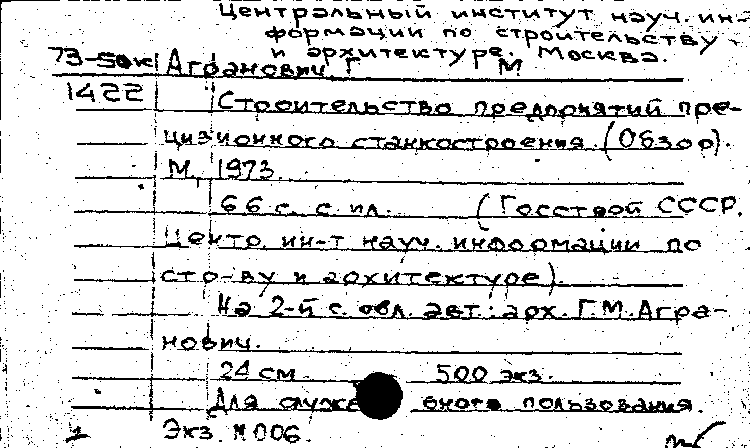 Центральный институт науч. ин-
формации по строительству
и архитектуре. Москва.
73-50к Агранович Г М
1422 Строительство предприятий пре-
цизионного станкостроения (Обзор).
М., 1973
66 с. с ил. (Госстрой СССР.
Центр. ин-т науч. информации по
стр-ву и архитектуре).
На 2-й с. обл. авт.: арх. Г.М. Агра-
нович.
24 см. 500 экз.
Для служебного пользования.
1 Экз. №006.